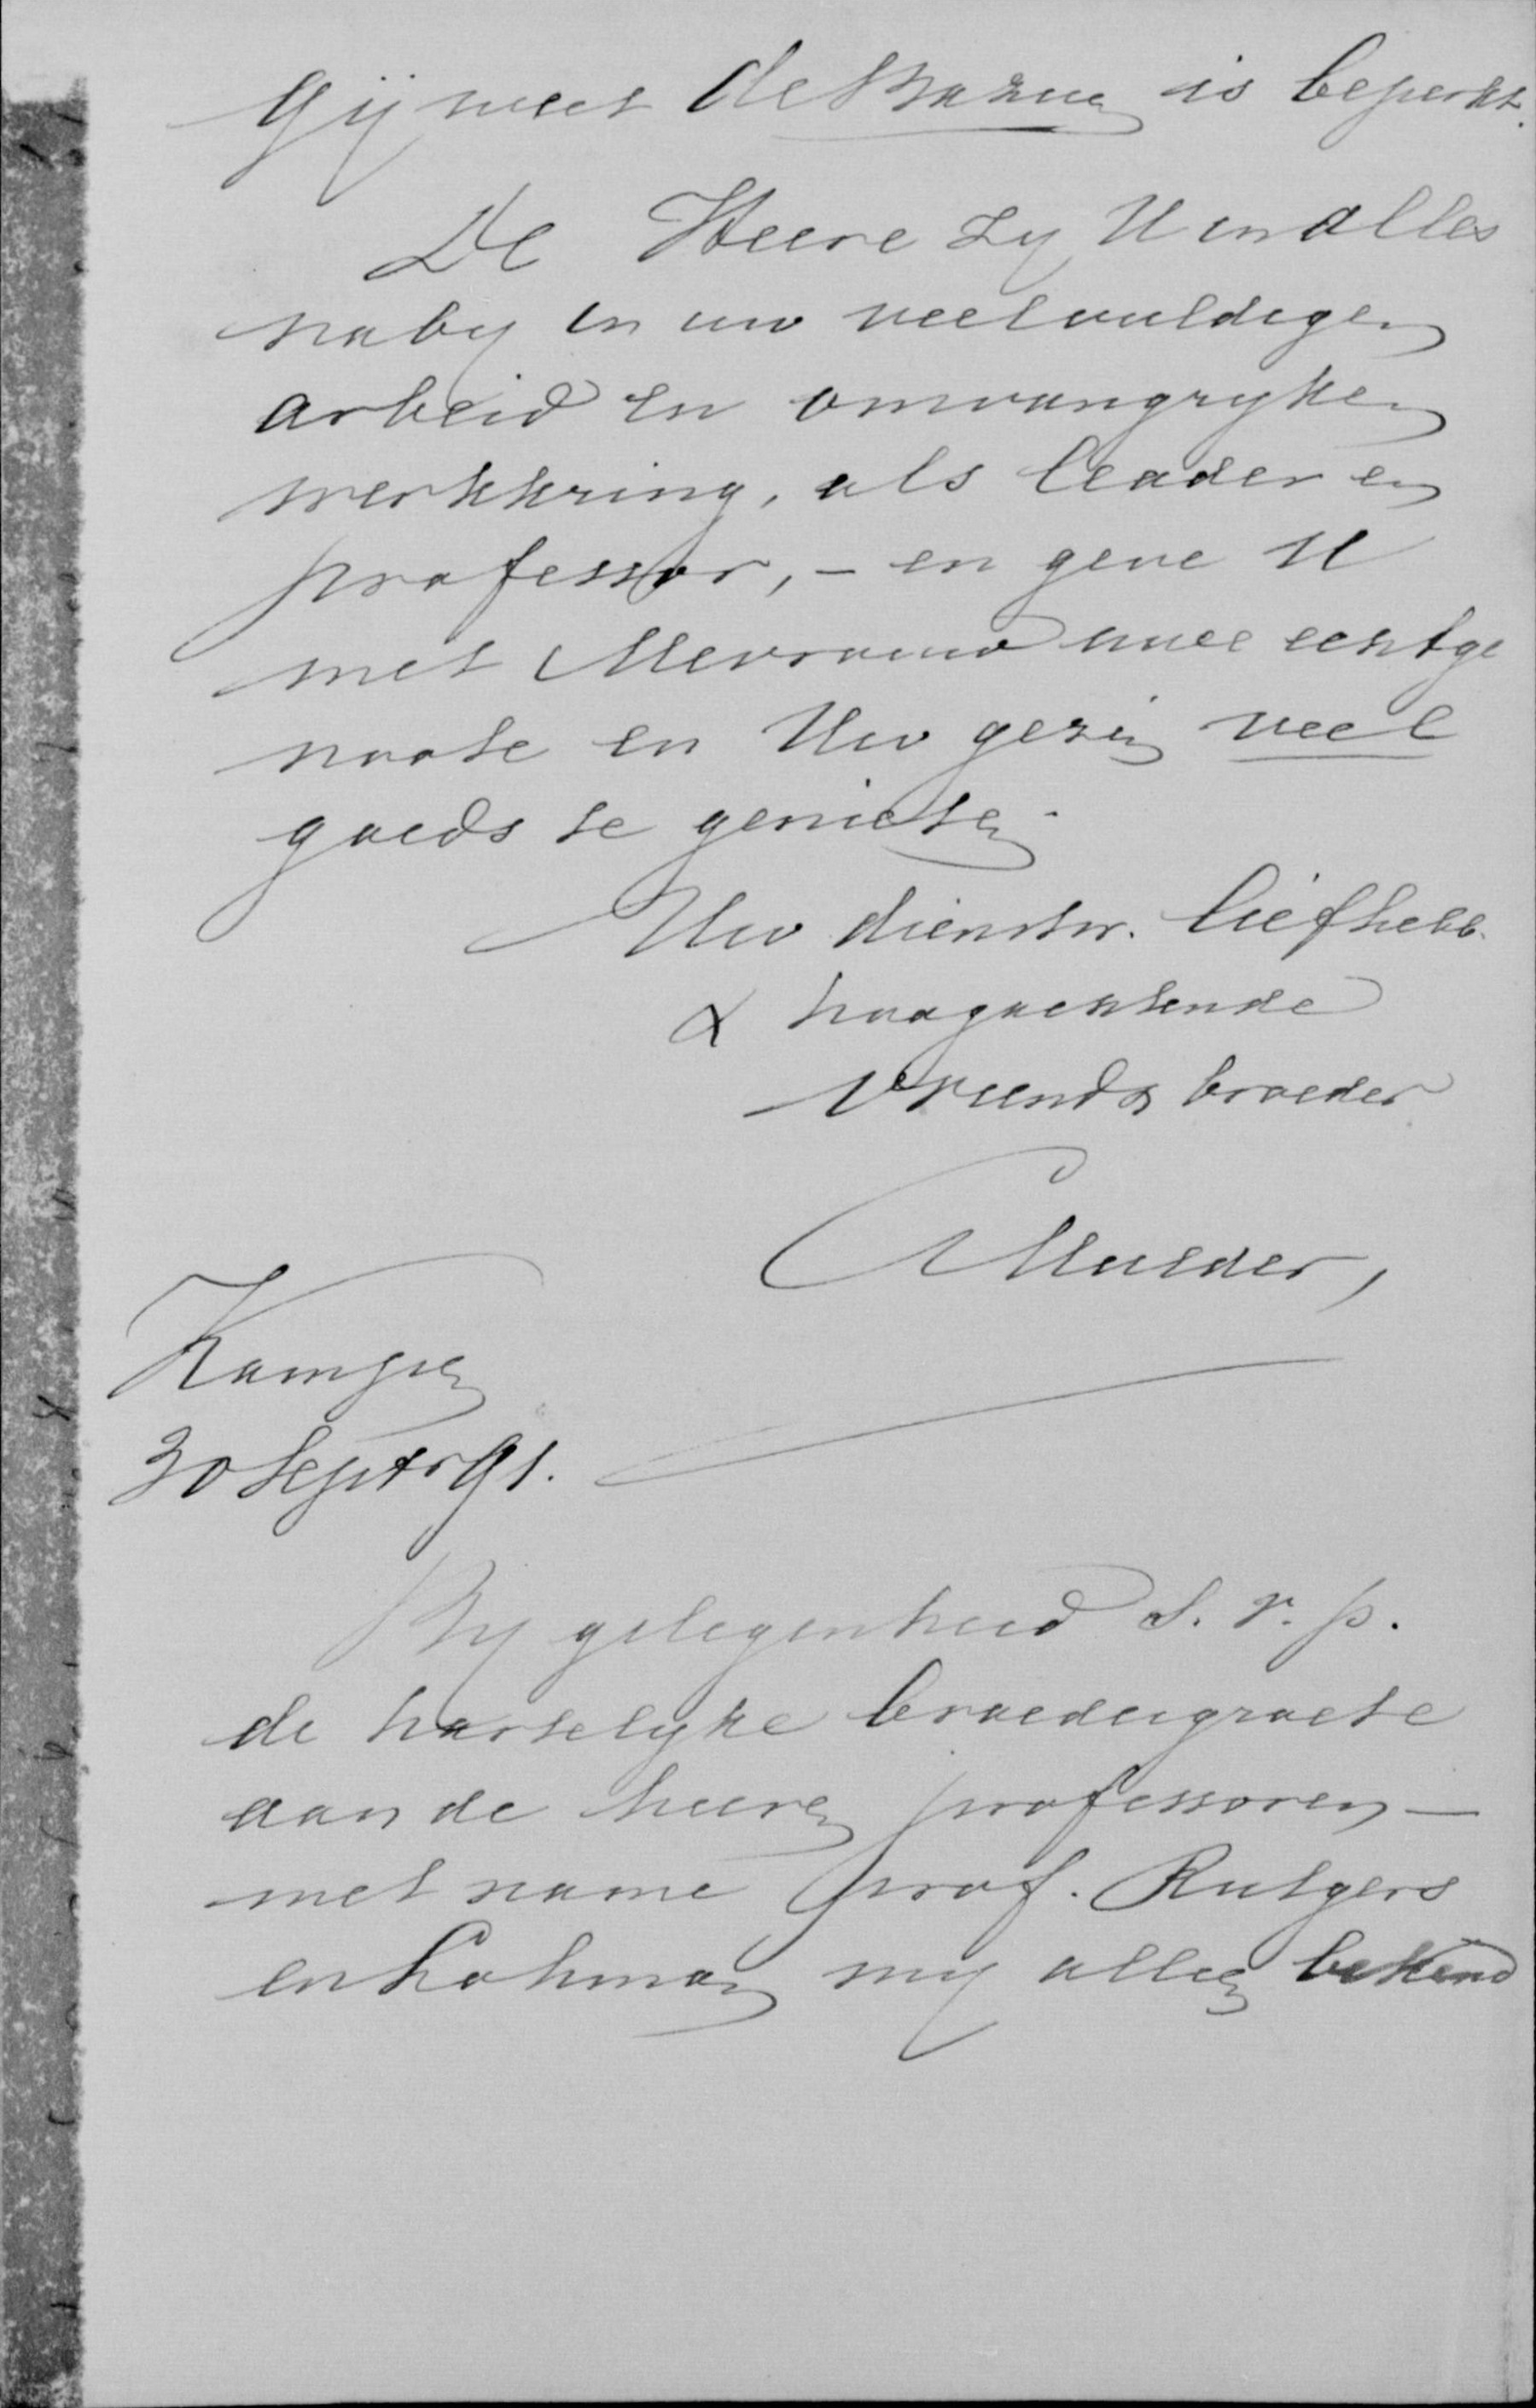 Gij weet de Bazuin is beperkt.
De Heere zy U in alles
naby in uw veelvuldigen
arbeid en omvangryken
werkkring, als leader en
professor, – en geve U
met Mevrouw uwe echtge
noote en Uw gezin veel
goeds te genieten.
Uw dienstw. liefhebb.
& hoogachtende
vriend & broeder
C Mulder,
Kampen
30 Septr 91.
By gelegenheid s. v. p.
de hartelyke broedergroete
aan de heeren professoren –
met name prof. Rutgers
en Lohman my allen bekend